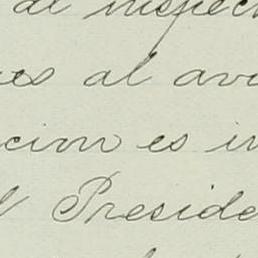 de inspecc
es al avi
cion es in
l Preside